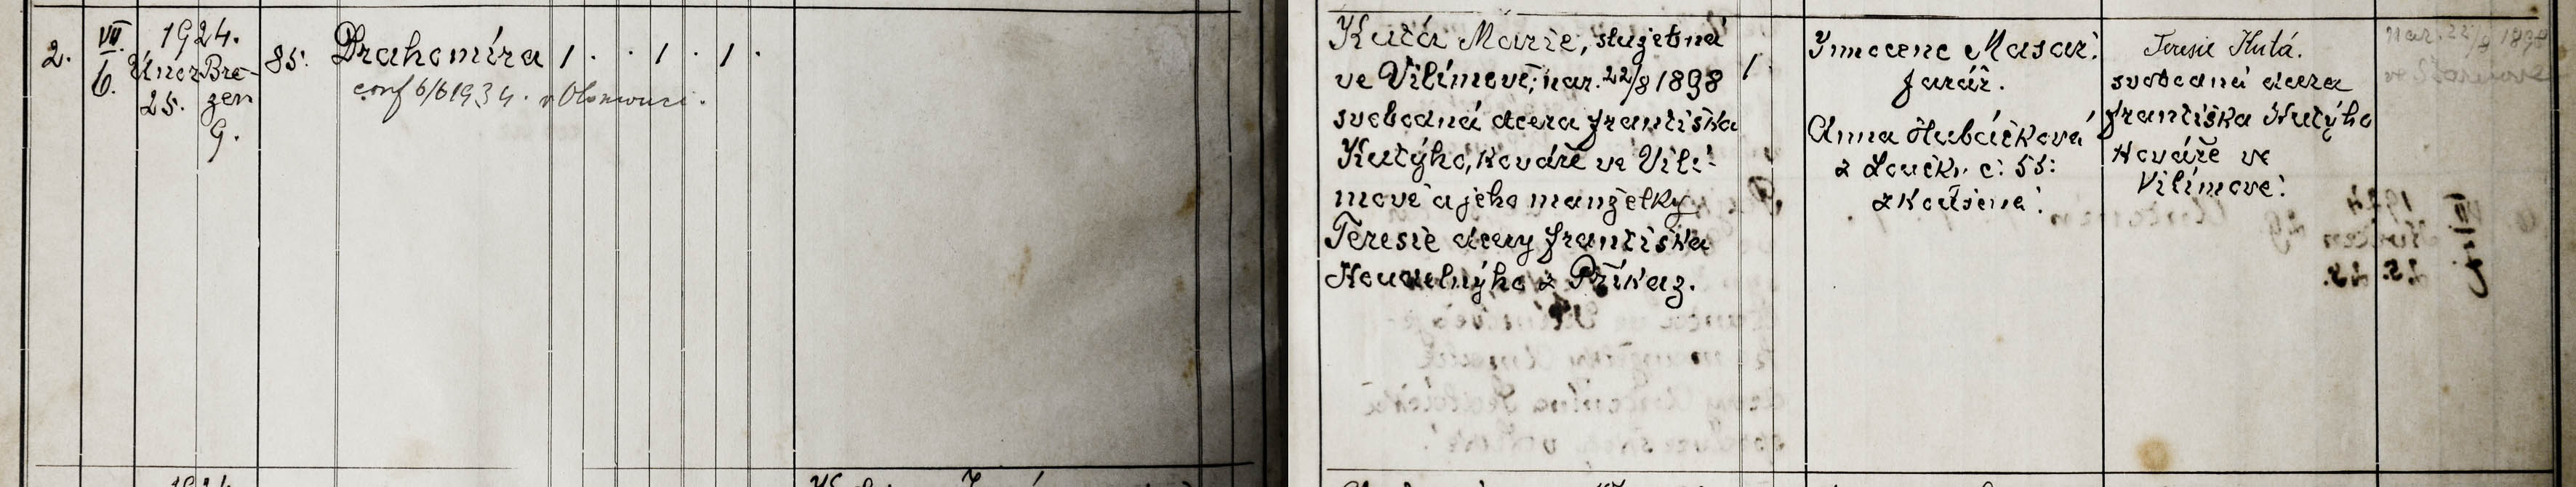 2.
VII.
6.
1924.
Únor
25.
Bře-
zen
9.
85.
Drahomíra 1 . . 1 . 1 .
conf 6/6 1934. v Olomouci.
Kutá Marie, služebná
ve Vilímově, nar. 22/8 1898
svobodná dcera Františka
Kutýho, kováře ve Vilí-
mově a jeho manželky
Teresie dcery Františka
z Příkaz.
1.
Innocenc Masař
farář.
Anna Hubáčková
z Loučk. č. 55.
Teresie Kutá.
svobodná dcera
Františka Kutýho
kováře ve
Vilímově.
nar. 22/8 1898